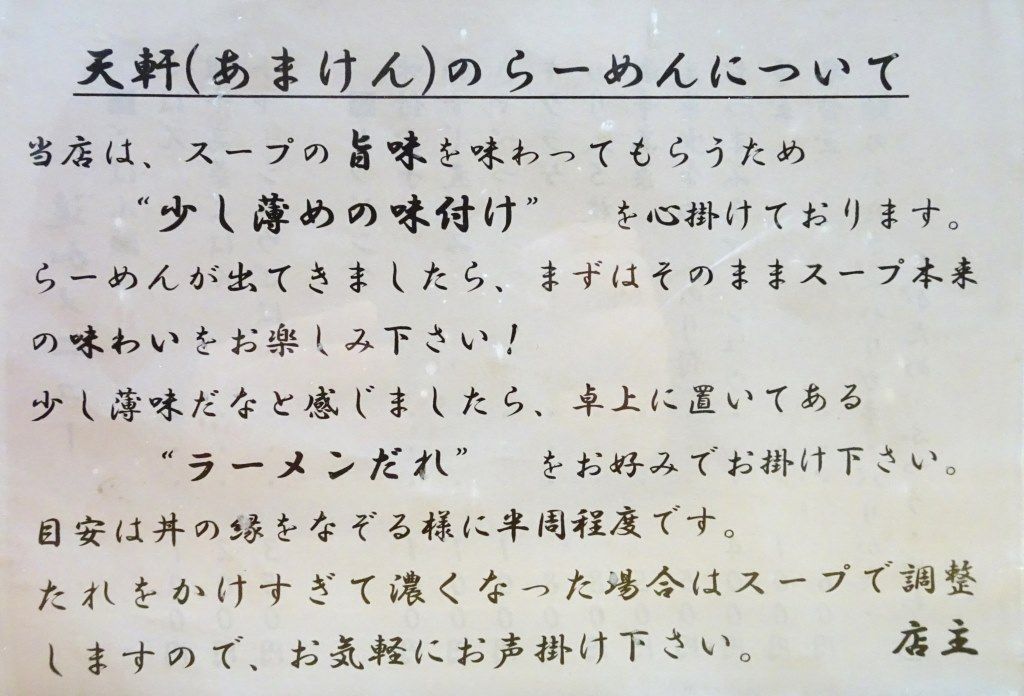 天軒(あまけん)のらーめんについて
当店は、スープの旨味を味わってもらうため
“少し薄めの味付け” を心掛けております。
らーめんが出てきましたら、まずはそのままスープ本来
の味わいをお楽しみ下さい！
少し薄味だなと感じましたら、卓上に置いてある
“ラーメンだれ” をお好みでお掛け下さい。
目安は丼の縁をなぞる様に半周程度です。
たれをかけすぎて濃くなった場合はスープで調整
しますので、お気軽にお声掛け下さい。 店主